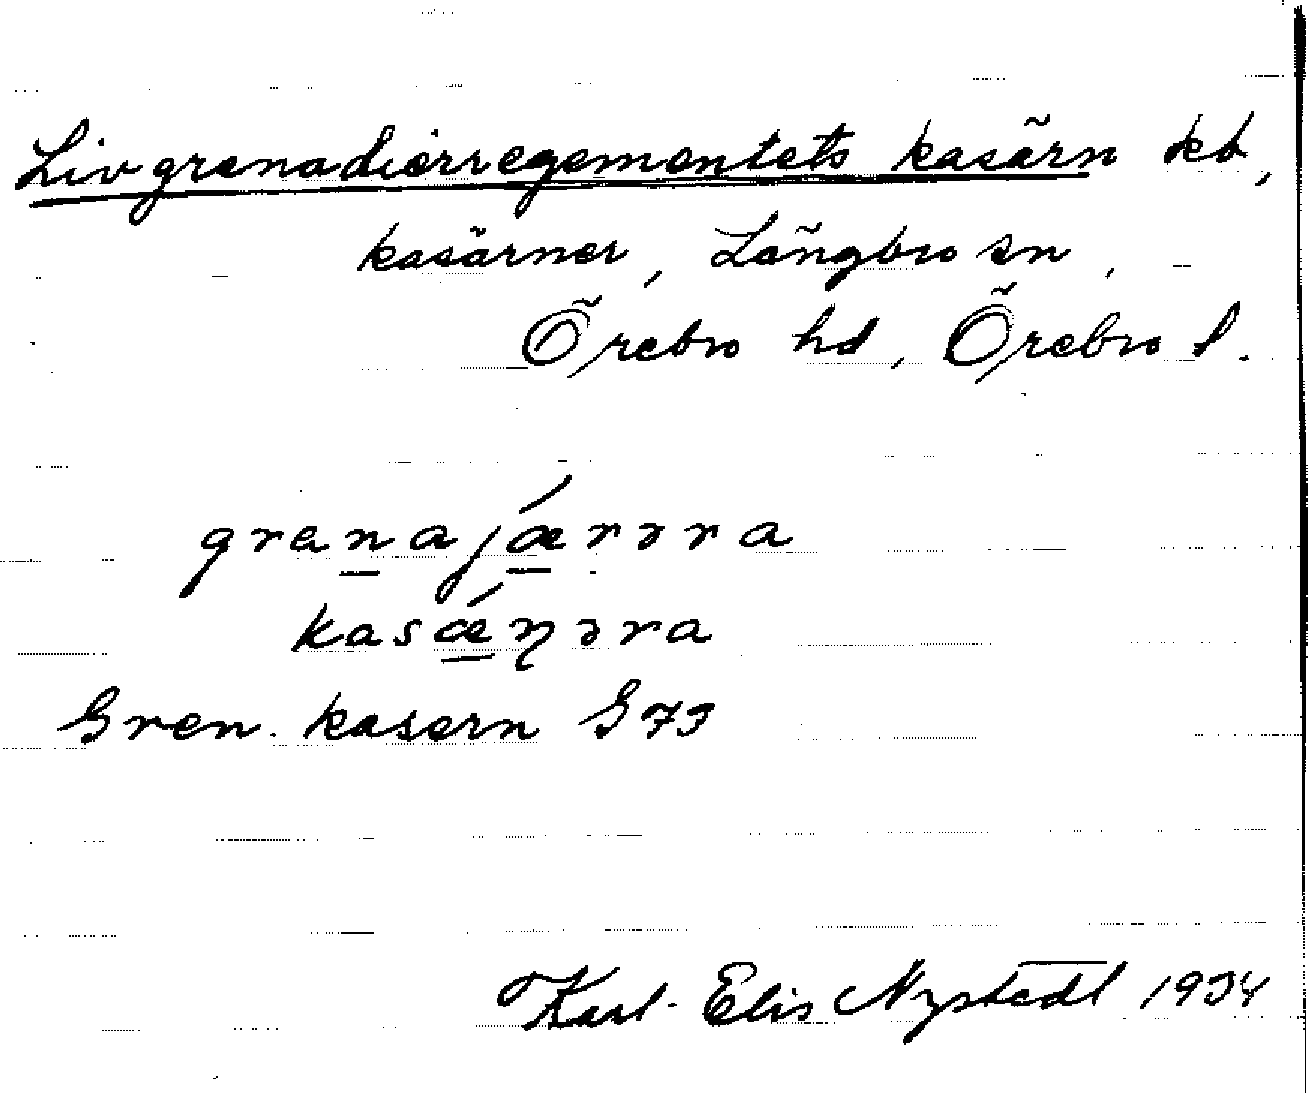 Livgrenadierregementets kasärn kb,
kasärner, Långbro sn,
Örebro hd, Örebro l.
grenajǽrərra
kasǽɳəra
Gren. kasern G73
Karl-Elis Nystedt 1934